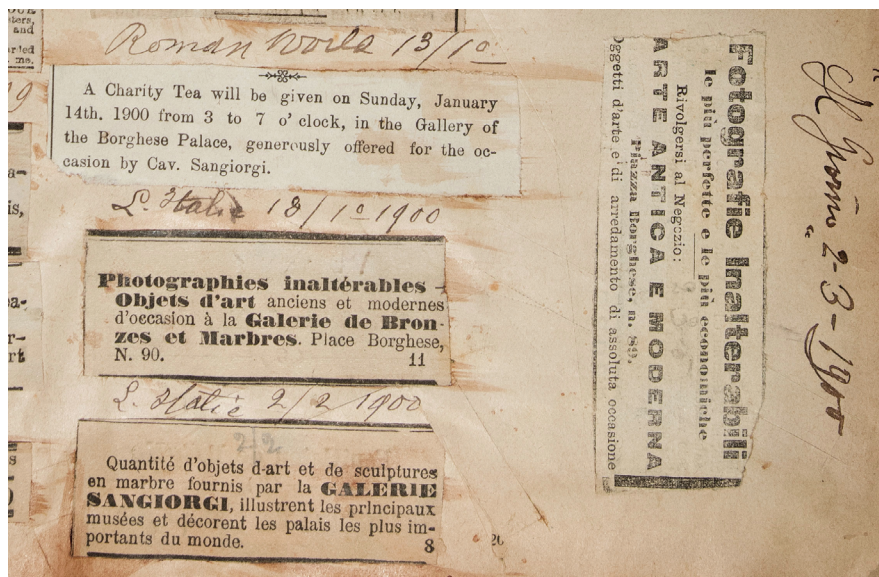 Roman World 13/1º
A Charity Tea will be given on Sunday, January
14th. 1900 from 3 to 7 o' clock, in the Gallery of
the Borghese Palace, generously offered for the oc-
casion by Cav. Sangiorgi.
L. Italie 18/1º 1900
Photographies inaltérables -
Objets d'art anciens et modernes
d'occasion à la Galerie de Bron-
zes et Marbres. Place Borghese,
N. 90.
11
L. Italie 2/2 1900
Quantité d'objets d-art et de sculptures
en marbre fournis par la GALERIE
SANGIORGI, illustrent les principaux
musées et décorent les palais les plus im-
portants du monde.
8
Fotografie Inalterabili
le più perfette e le più economiche
Rivolgersi al Negozio:
ARTE ANTICA E MODERNA
Piazza Borghese, n. 89.
Oggetti d'arte e di arredamento di assoluta occasione
Il Giorno 2-3-1900